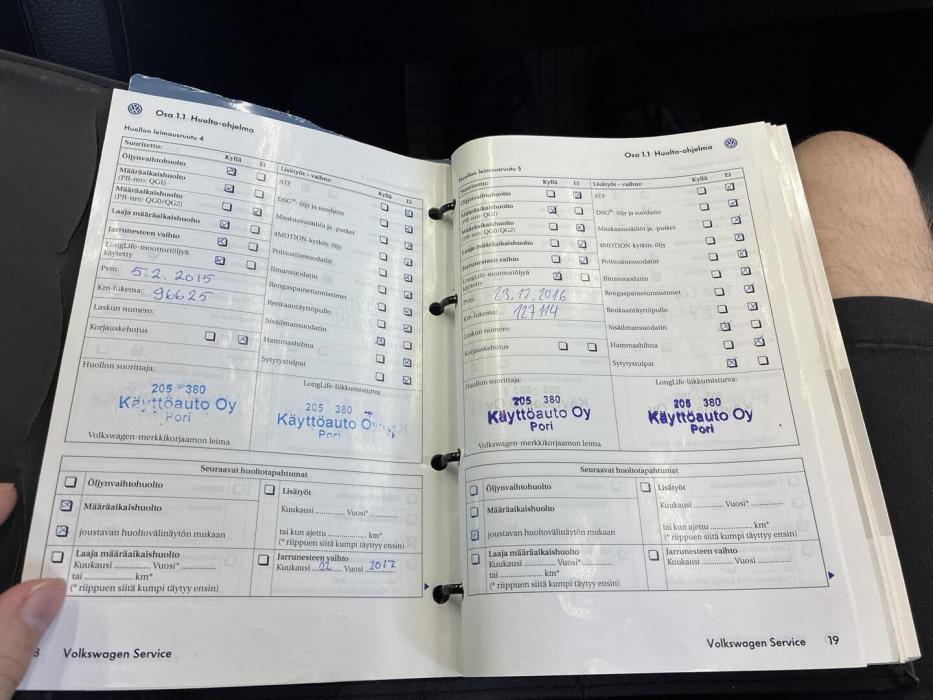 Osa 1.1 Huolto-ohjelma
Huollon leimausruutu 4
Suoritettu: Kyllä Ei
Öljynvaihtohuolto
Määräaikaishuolto
(PR-nro: QG1)
Määräaikaishuolto
(PR-nro: QG0/QG2)
Laaja määräaikaishuolto
Jarrunesteen vaihto
LongLife-moottoriöljyä
käytetty
Pvm. 5.2.2015
Km-lukema: 96625
Laskun numero:
Korjauskehotus
Lisätyöt – vaihto: Kyllä Ei
ATF
DSG®: öljy ja suodatin
Maakaasusäiliöt ja -putket
4MOTION-kytkin: öljy
Polttoainesuodatin
Ilmansuodatin
Rengaspainetunnistimet
Renkaantäyttöpullo
Sisäilmansuodatin
Hammashihna
Sytytystulpat
Huollon suorittaja:
205 380
Käyttöauto Oy
Pori
Volkswagen-merkkikorjaamon leima
LongLife-liikkumisturva:
205 380
Käyttöauto Oy
Pori
Seuraavat huoltotapahtumat
Öljynvaihtohuolto
Määräaikaishuolto
joustavan huoltovälinäytön mukaan
Lisätyöt
Kuukausi .............. Vuosi*..............
tai kun ajettu .................... km*
(* riippuen siitä kumpi täytyy ensin)
Laaja määräaikaishuolto
Kuukausi .............. Vuosi*..............
tai .................... km*
(* riippuen siitä kumpi täytyy ensin)
Jarrunesteen vaihto
Kuukausi 02 Vuosi 2017
Volkswagen Service
Osa 1.1 Huolto-ohjelma
Huollon leimausruutu 5
Suoritettu: Kyllä Ei
Öljynvaihtohuolto
Määräaikaishuolto
(PR-nro: QG1)
Määräaikaishuolto
(PR-nro: QG0/QG2)
Laaja määräaikaishuolto
Jarrunesteen vaihto
LongLife-moottoriöljyä
käytetty
Pvm. 23.12.2016
Km-lukema: 127114
Laskun numero:
Korjauskehotus
Lisätyöt – vaihto: Kyllä Ei
ATF
DSG®: öljy ja suodatin
Maakaasusäiliöt ja -putket
4MOTION-kytkin: öljy
Polttoainesuodatin
Ilmansuodatin
Rengaspainetunnistimet
Renkaantäyttöpullo
Sisäilmansuodatin
Hammashihna
Sytytystulpat
Huollon suorittaja:
205 380
Käyttöauto Oy
Pori
Volkswagen-merkkikorjaamon leima
LongLife-liikkumisturva:
205 380
Käyttöauto Oy
Pori
Seuraavat huoltotapahtumat
Öljynvaihtohuolto
Määräaikaishuolto
joustavan huoltovälinäytön mukaan
Lisätyöt
Kuukausi .............. Vuosi*..............
tai kun ajettu .................... km*
(* riippuen siitä kumpi täytyy ensin)
Laaja määräaikaishuolto
Kuukausi .............. Vuosi*..............
tai .................... km*
(* riippuen siitä kumpi täytyy ensin)
Jarrunesteen vaihto
Kuukausi .............. Vuosi ..............
Volkswagen Service 19